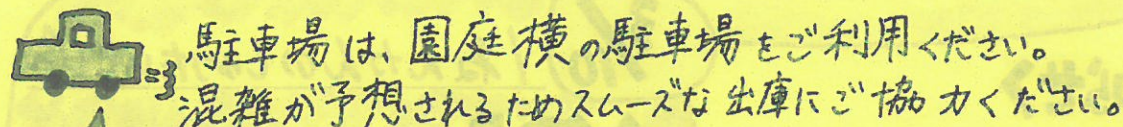 駐車場は、園庭横の駐車場をご利用ください。
混雑が予想されるためスムーズな出庫にご協力ください。